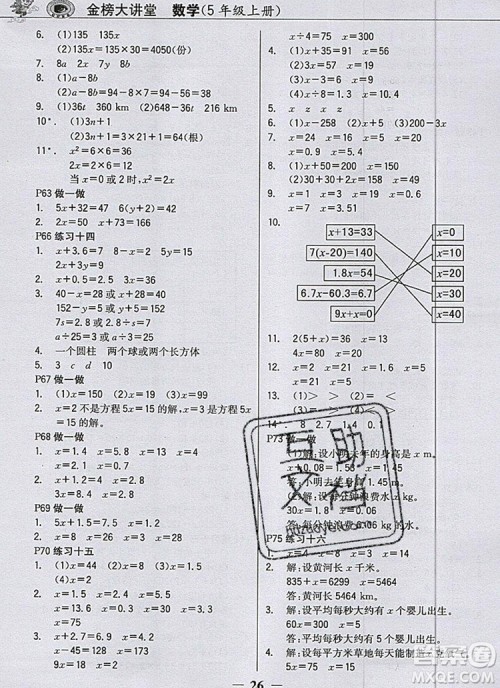 金榜大讲堂 数学(5年级上册)
6. (1)135 135x
(2)135x=135×30=4050(份)
7. 8a 2x 7y 8b
8. (1)a-b
(2)a-b=94-8×7=94-56=38
9. (1)36t 360 km (2)648-36t 216 km
10*. (1)3n+1
(2)3n+1=3×21+1=64(根)
11*. x²=6×6=36
2x=2×6=12
当x=0或2时,x²和2x正好相等。
P63 做一做
1. 5x+32=47 6(y+2)=42
2. 2x=50 x+73=166
P66 练习十四
1. x+3.6=7 x÷8=2 5y=15
2x+3y=9
2. x+1.2=4 3x=2.4
3. 40-x=28或x+28=40
152-y=58或y+58=152
7s=2.8或2.8÷s=7
2b=12或12÷b=2
4. 一个圆柱 两个球或两个长方体
5. 3 c d 10
P67 做一做
1. (1)x=150 (2)x=19 (3)x=99
2. x=2不是方程5x=15的解,x=3是方程5x
=15的解。
P68 做一做
1. x=1.4 x=5.8 x=13
2. x=1.3 x=4 x=4.4
P69 做一做
1. 5x+1.5=9 x=1.5
2. x=1.5 x=6 x=3 x=40
P70 练习十五
1. (1)x=44 (2)x=108 (3)x=4
(4)x=2
2. x=0.1 x=2.5 x=54
x=5.5 x=0.5 x=0.6
3. x+1.5=4 x=2.5
3x=8.4 x=2.8
6x=9 x=1.5
5x÷4=75 x=24
4. (1)x+34=57 x=23
(2)3x=57 x=19
(3)x-6=3 x=9
(4)x÷8=1.3 x=10.4
5. z x z x
6. (1)x-258 (2)x+5 (3)200-3x
7. x=24 x=16 x=15 x=15
x=0.9 x=5.4
8. (1)x+50=200 x=150
(2)30+30+2x=158 x=49
9. x=63 x=1.3 x=4 x=15
x=30 x=0.4
10.
x+13=33 x=0
7(x-20)=140 x=10
1.8x=54 x=20
6.7x-60.3=6.7 x=30
9x+x=0 x=40
11. 2(5+x)=36 x=13
4x=80 x=20
12. x=9 x=13 x=1.2
13. (1)> = < (2)= < <
P73 做一做
P75 练习十六
1. x=4 x=8 x=3 x=13
2. 解:设黄河长x千米。
835+x=6299
x=5464
答:黄河长5464 km。
3. 解:设平均每秒大约有x个婴儿出生。
60x=300 x=5
答:平均每秒大约有5个婴儿出生。
— 26 —
互助
文档